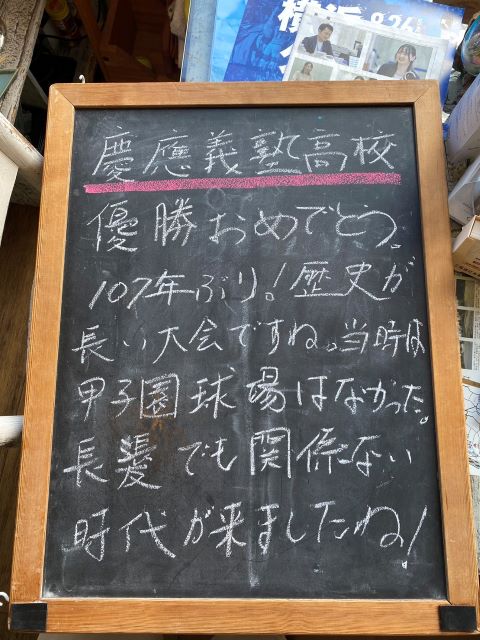 横浜 8.26
慶應義塾高校
優勝おめでとう。
107年ぶり。!歴史が
長い大会ですね。当時は
甲子園球場はなかった。
長髪でも関係ない
時代が来ましたね!